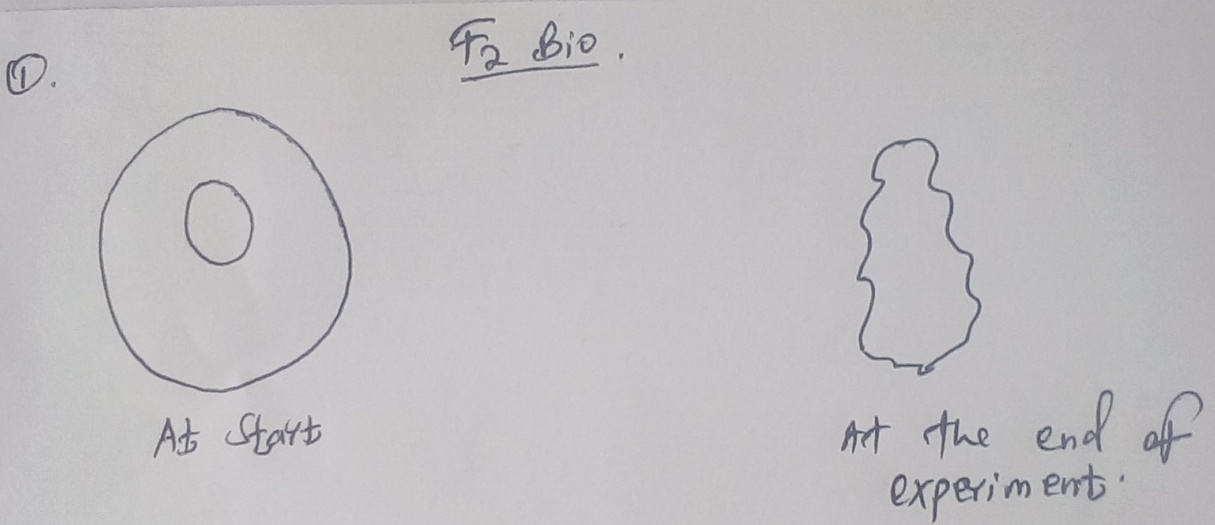 F2 Bio.
①.
At Start
At the end of
experiment.